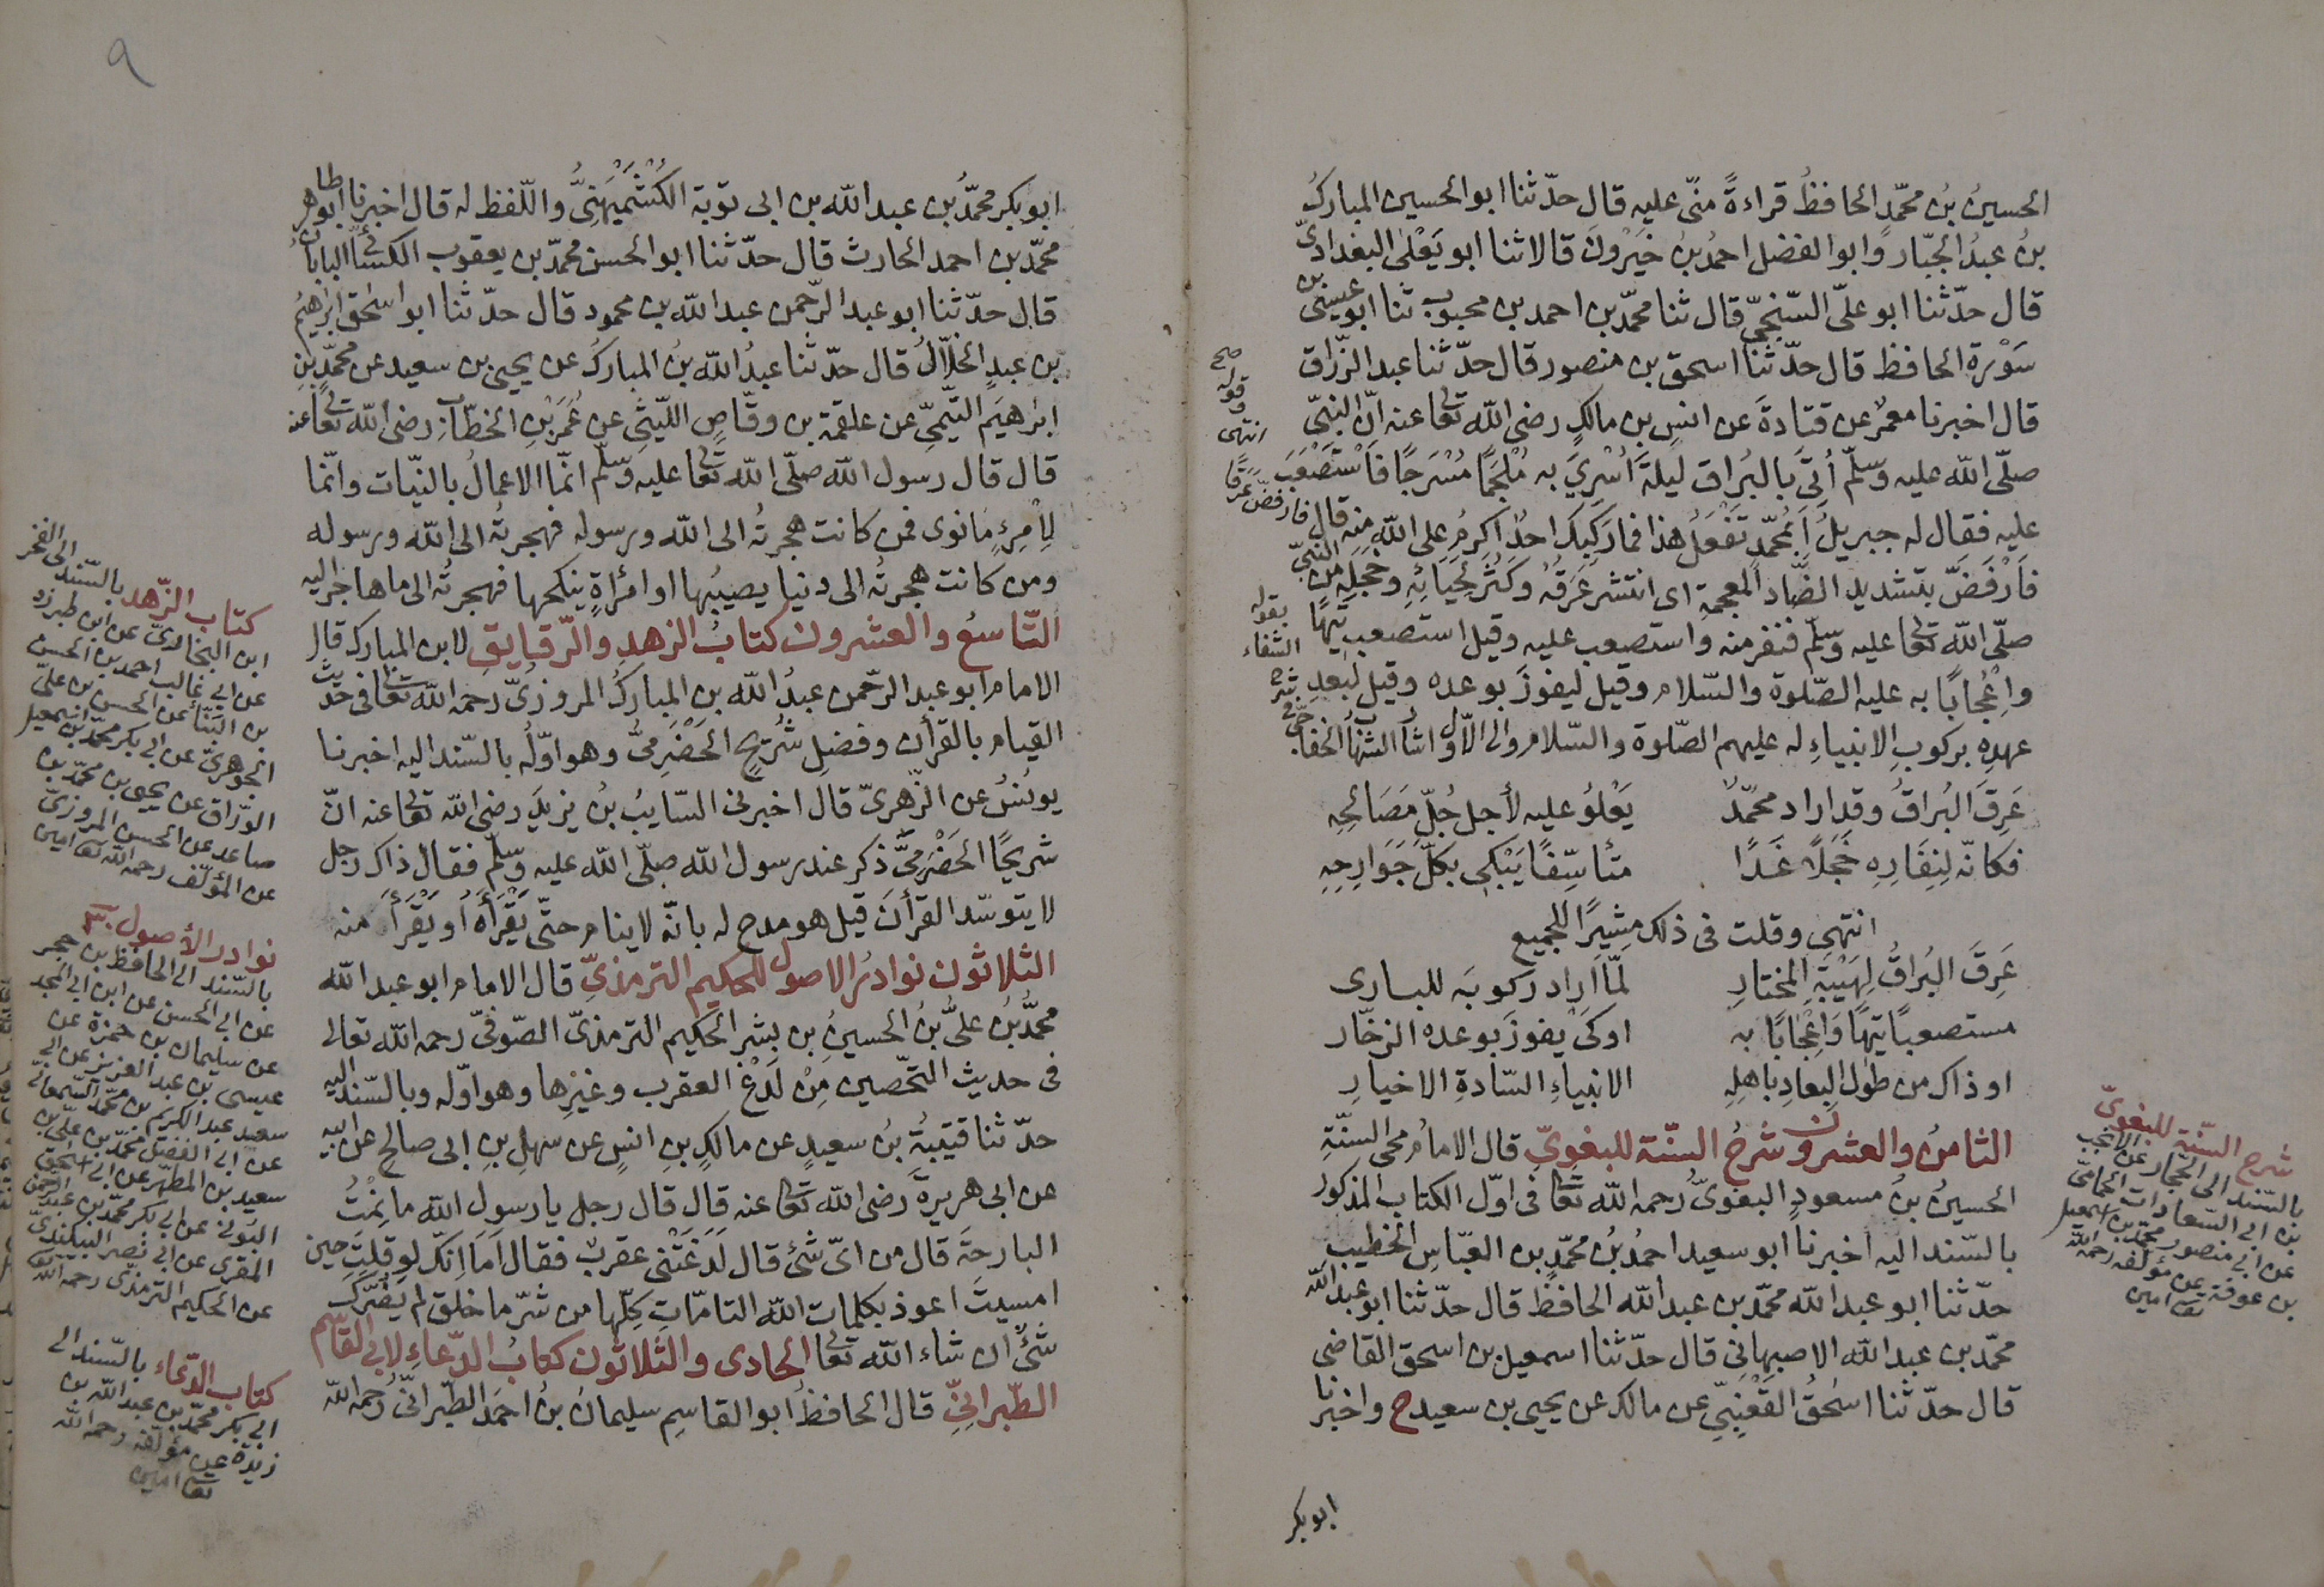 الحسينُ بنُ محمّدٍ الحافظُ قراءةً منّى عليه قال حدّثنا ابو الحسين المباركُ
بنُ عبدُ الجبّار وابو الفضل احمدُ بنُ خَيْرُونَ قالا ثنا ابو يَعْلىٰ البغدادىّ
قال حدّثنا ابو علىّ السّنجىّ قال ثنا محمّد بن احمد بن محبوب ثنا ابو عيسى بن
سَوْرة الحافظ قال حدّثنا اسحق بن منصور قال حدّثنا عبد الرّزاق
قال اخبرنا معمرٌ عن قتادةَ عن انسِ بن مالكٍ رضى الله تعالى عنه انّ النبىّ
صلّى الله عليه وسلّم أُتِىَ بالبُراق ليلةَ أُسْرِىَ به مُلْجَمًا مُسْرَجًا فَاسْتَصْعَبَ
عليه فقال له جبريلُ أَبِمُحَمَّدٍ تَفْعَلُ هذا فما رَكِبَكَ احدٌ اكرمُ على الله منه قال فارفضّ عرقًا
فَارْفَضَّ بتشديد الضّاد المعجمة اى انتشر عَرَقُه وكَثُرَ لِحَيَائِهِ وخجلِهِ من النبىّ
صلّى الله تعالى عليه وسلّم فنفر منه واستصعب عليه وقيل استصعب تِيهًا
واِعْجابًا به عليه الصّلوة والسّلام وقيل ليفوزَ بوعده وقيل لبُعدِ
عهدِه بركوبِ الانبياءِ له عليهم الصّلوة والسّلام والى الاوّل اشار الشّهاب الخفاجىّ
عَرِقَ البُراقُ وقد اراد محمّدٌ يَعْلوُ عليه لأجل جُلّ مَصَالحِه
فكانّه لِنِفَارِهِ خَجَلاً غَدَا متأسِّفًا يَبْكى بكلّ جَوَارِحِهِ
انتهى وقلت فى ذلك مشيرًا للجميع
عَرِقَ البُراقُ لِهَيْبَةِ المختارِ لمّا اراد ركوبَه للبارى
مستصعبًا تيهًا وَاِعْجابًا به اوكىْ يفوزَ بوعده الزخّار
او ذاك من طول البِعادِ باهلِهِ الانبياءِ السّادةِ الاخيارِ
الثامنُ والعشرون شرحُ السنّة للبغوىّ قال الامامُ محى السنّةِ
الحسينُ بنُ مسعودٍ البغوىُّ رحمه الله تعالى فى اوّل الكتاب المذكور
بالسّند اليه اخبرنا ابو سعيد احمدُ بُن محمّدِ بن العبّاس الخطيب
حدّثنا ابو عبد الله محمّد بن عبد الله الحافظ قال حدّثنا ابو عبد الله
محمّد بن عبد الله الاصبهانى قال حدّثنا اسمعيل بن اسحق القاضى
قال حدّثنا اسحقُ القَعْنَبِىّ عن مالك عن يحيى بن سعيد ح واخبرنا
ابو بكر
صح
قوله
و
انتهى
بقوله
الشفاء
شرح
فى
شرح السنّة للبغوىّ
بالسّند الى الحجّار عن الانجب
بن ابى السّعادات الحمامىّ
عن ابى منصور محمّد بن اسمعيل
بن عوفة عن مؤلفه رحمه الله
تعالى امين
٩
ابو بكر محمّدُ بن عبد الله بن ابى توبة الكُشْمَيْهَنِىُّ واللّفظ له قال اخبرنا ابو طاهر
محمّد بن احمد الحارث قال حدّثنا ابو الحسن محمّد بن يعقوب الكسائى
قال حدّثنا ابو عبد الرّحمن عبد الله بن محمود قال حدّثنا ابو اسحٰق ابرٰهيمُ
بن عبدٍ الخلاّلُ قال حدّثنا عبدُ الله بنُ المباركُ عن يحيى بن سعيد عن محمّدِ بنِ
ابرٰهيمَ التيّمىّ عن علقمة بن وقّاصٍ اللّيثىّ عن عُمَرَ بْنِ الخطّابِ رضى الله تعالى عنه
قال قال رسول الله صلّى الله تعالى عليه وسلّم انّما الاعمالُ بالنيّات وانّما
لاِمْرِءٍ مانوى فمن كانت هجرتُه الى الله ورسوله فهجرتُه الى الله ورسوله
ومن كانت هجرتُه الى دنيا يصيبُها او امرأةٍ ينكحها فهجرتُه الى ما هاجر اليه
التّاسعُ والعشرون كتابُ الزهدِ والرّقايقِ لابن المبارك قال
الامام ابو عبد الرّحمن عبدُ الله بن المباركُ المروزىُّ رحمه الله تعالى فى حديث
القيام بالقرأن وفضل شُرَيْحٍ الحَضْرَمِىّ وهو اوّلُه بالسّند اليه اخبرنا
يونُسُ عن الزّهرىّ قال اخبرنى السّايبُ بنُ يزيدَ رضى الله تعالى عنه انّ
شريحًا الحَضْرَمِىَّ ذكر عند رسول الله صلّى الله عليه وسلّم فقال ذاك رجل
لا يتوسّد القرأنَ قيل هو مدح له بانّه لا ينام حتّى يَقْرَأَهُ اَو يَقْرَأَ منه
الثلاثون نوادرُ الاصول للحكيم الترمذىّ قال الامام ابو عبد الله
محمّدُ بنُ علىِّ بنُ الحسينِ بن بشرٍ الحكيم الترمذىّ الصّوفىّ رحمه الله تعالى
فى حديث التّحصين مِنْ لَدْغِ العقرب وغيرِها وهو اوّله وبالسّند اليه
حدّثنا قتيبةُ بنُ سعيدٍ عن مالكِ بنِ انسٍ عن سهيلِ بنِ ابى صالحٍ عن ابيه
عن ابى هريرةَ رضى الله تعالى عنه قال قال رجل يا رسول الله ما نِمْتُ
البارحةَ قال من اىّ شئ قال لَدَغَتْنى عقربٌ فقال اَمَا اِنّك لو قلتَ حين
امسيتَ اعوذ بكلمات الله التامّاتِ كلِّها من شرّ ما خلق لم يَضُرَّكَ
شئٌ ان شاء الله تعالى الحادى والثلاثون كتابُ الدّعاءِ لابى القاسم
الطّبرانِىّ قال الحافظُ ابو القاسِم سليمانُ بنُ احمَدَ الطّبرانىُّ رحمه الله
كتاب الزّهد بالسّند الى الفخر
ابن البخارىّ عن ابن طبرزد
عن ابى غالب احمد بن الحسن
بن البنّاء عن الحسن بن علىّ
الجوهرىّ عن ابى بكر محمّد بن اسمعيل
الورّاق عن يحيى بن محمّد بن
صاعد عن الحسين المروزىّ
عن المؤلّف رحمه الله تعالى امين
نوادر الأصول
بالسّند الى الحافظ بن حجر
عن ابى الحسن عن ابن ابى المجد
عن سليمان بن حمزة عن
عيسى بن عبد العزيز عن ابى
سعيد عبد الكريم بن محمّد السّمعانىّ
عن ابى الفضل محمّد بن علىّ بن
سعيد بن المطهّر عن ابى اسحق
البُوقى عن ابى بكر محمّد بن عبد الرحمن
المقرى عن ابى نصر البيكندىّ
عن الحكيم الترمذى رحمه الله تعالى
كتاب الدّعاء بالسّند الى
ابى بكر محمّد بن عبد الله بن
زيدة عن مؤلفه رحمه الله
تعالى امين